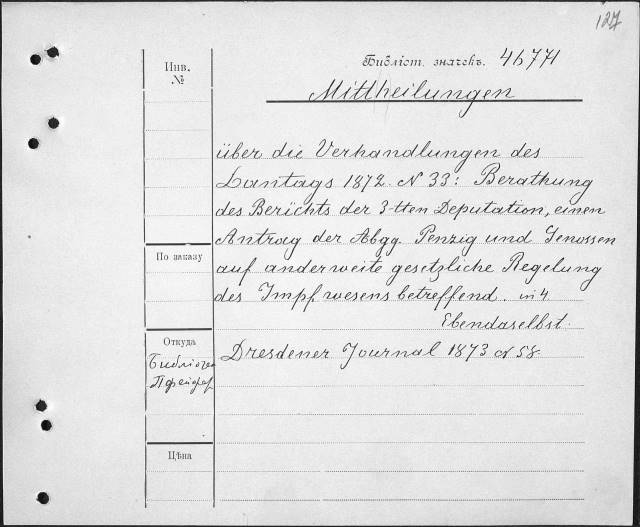 127
Инв.
№
Библіот. значекъ. 46771
Mittheilungen
über die Verhandlungen des
Lantags 1872. N 33: Berathung
des Berichts der 3-tten Deputation, einen
Antrag der Abgg. Penzig und Genossen
По заказу
auf anderweite gesetzliche Regelung
des Impfwesens betreffend. in 4.
Ebendaselbst.
Откуда
Dresdener Journal 1873 N 58.
Цѣна